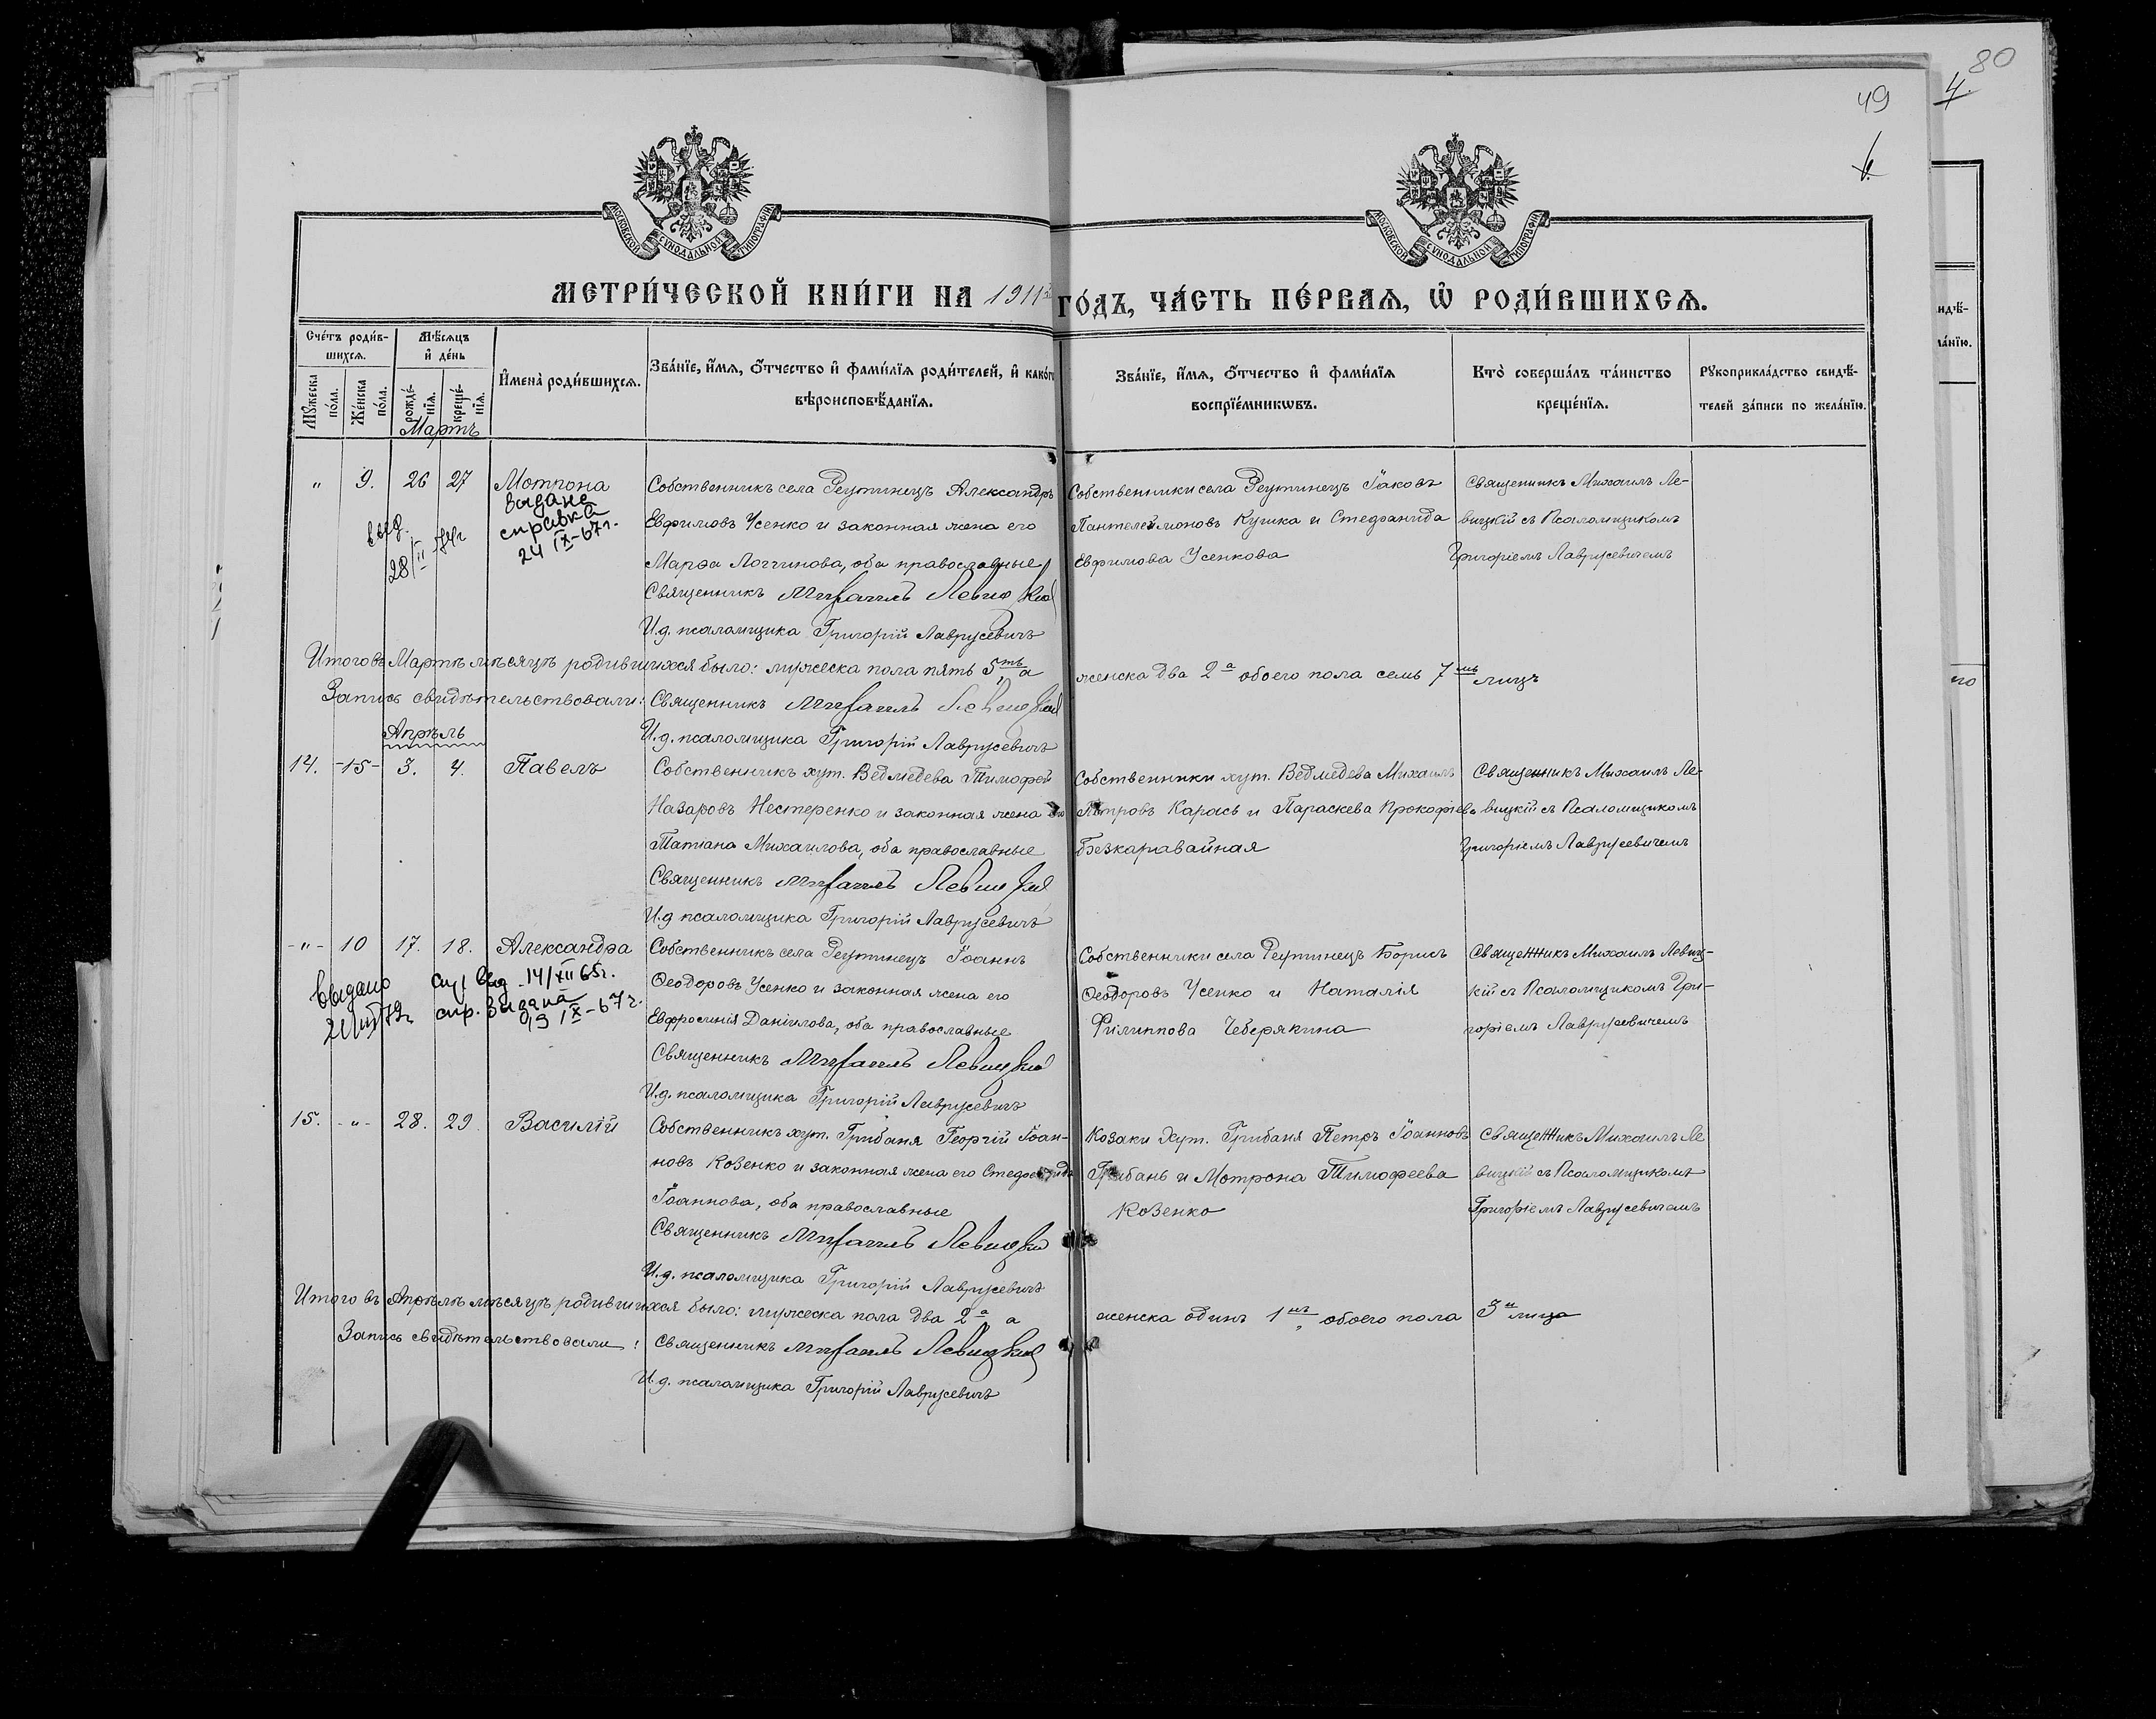 80
49
4.
МОСКОВСКОЙ СѴНОДАЛЬНОЙ ТИПОГРАФІИ
МОСКОВСКОЙ СѴНОДАЛЬНОЙ ТИПОГРАФІИ
МЕТРИ́ЧЕСКОЙ КНИ́ГИ НА 1911й ГО́ДЪ, ЧА́СТЬ ПЕ́РВАѦ, Ѡ҆ РОДИ́ВШИХСѦ.
Сче́тъ роди́вшихсѧ.
Мꙋ́жеска по́ла.
Же́нска по́ла.
Мѣ́сѧцъ и҆ де́нь
рожде́нїѧ.
креще́нїѧ.
И҆мена̀ роди́вшихсѧ.
Зва́нїе, и҆́мѧ, ѻ҆́тчество и҆ фами́лїѧ роди́телей, и҆ како́гѡ
вѣроисповѣ́данїѧ.
Зва́нїе, и҆́мѧ, ѻ҆́тчество и҆ фами́лїѧ
воспрїе́мникѡвъ.
Кто̀ соверша́лъ та́инство
креще́нїѧ.
Рꙋкоприкла́дство свидѣ́-
телей за́писи по жела́нїю.
Мартъ
" 9. 26 27 Мотрона
видана
справка
24 IX-67г.
выд.
28/II-74г
Собственникъ села Реутинецъ Александръ
Евфимовъ Усенко и законная жена его
Марѳа Логгинова, оба православные
Священникъ Михаилъ Левицкій
И.д. псаломщика Григорій Лаврусевичъ
Собственники села Реутинецъ Іаковъ
Пантелеймоновъ Кушка и Стефанида
Евфимова Усенкова
Священникъ Михаилъ Ле-
вицкій съ Псаломщикомъ
Григоріемъ Лаврусевичемъ
Итого въ Мартѣ мѣсяцѣ родившихся было: мужеска пола пять 5ть, а женска два 2а обоего пола семь 7мь лицъ
Запись свидѣтельствовали: Священникъ Михаилъ Левицкій
И.д. псаломщика Григорій Лаврусевичъ
Апрѣль
14. -15- 3. 4. Павелъ
Собственникъ хут. Ведмедева Тимофей
Назаровъ Нестеренко и законная жена его
Татіана Михаилова, оба православные
Священникъ Михаилъ Левицкій
И.д псаломщика Григорій Лаврусевичъ
Собственники хут. Ведмедева Михаилъ
Петровъ Карась и Параскева Прокофіева
Безкаравайная
Священникъ Михаилъ Ле-
вицкій съ Псаломщикомъ
Григоріемъ Лаврусевичемъ
-"- 10 17. 18. Александра
выд 14/XII 65г.
спр. выдана
19 IX-67г.
Выдано
Собственникъ села Реутинецъ Іоаннъ
Ѳеодоровъ Усенко и законная жена его
Евфросинія Даніилова, оба православные
Священникъ Михаилъ Левицкій
И.д. псаломщика Григорій Лаврусевичъ
Собственники села Реутинецъ Борисъ
Ѳеодоровъ Усенко и Наталія
Филиппова Чеберякина
Священникъ Михаилъ Левиц-
кій съ Псаломщикомъ Гри-
горіемъ Лаврусевичемъ
15. -"- 28. 29. Василій
Собственникъ хут. Грибаня Георгій Іоан-
новъ Козенко и законная жена его Стефанида
Іоаннова, оба православные
Священникъ Михаилъ Левицкій
И.д. псаломщика Григорій Лаврусевичъ
Козаки Хут. Грибаня Петръ Іоанновъ
Грибань и Мотрона Тимофеева
Козенко
Священникъ Михаилъ Ле
вицкій съ Псаломщикомъ
Григоріемъ Лаврусевичемъ
Итого въ Апрѣлѣ мѣсяцѣ родившихся было: мужеска пола два 2а, а женска одинъ 1нъ, обоего пола 3и лица
Запись свидѣтельствовали: Священникъ Михаилъ Левицкій
И.д. псаломщика Григорій Лаврусевичъ